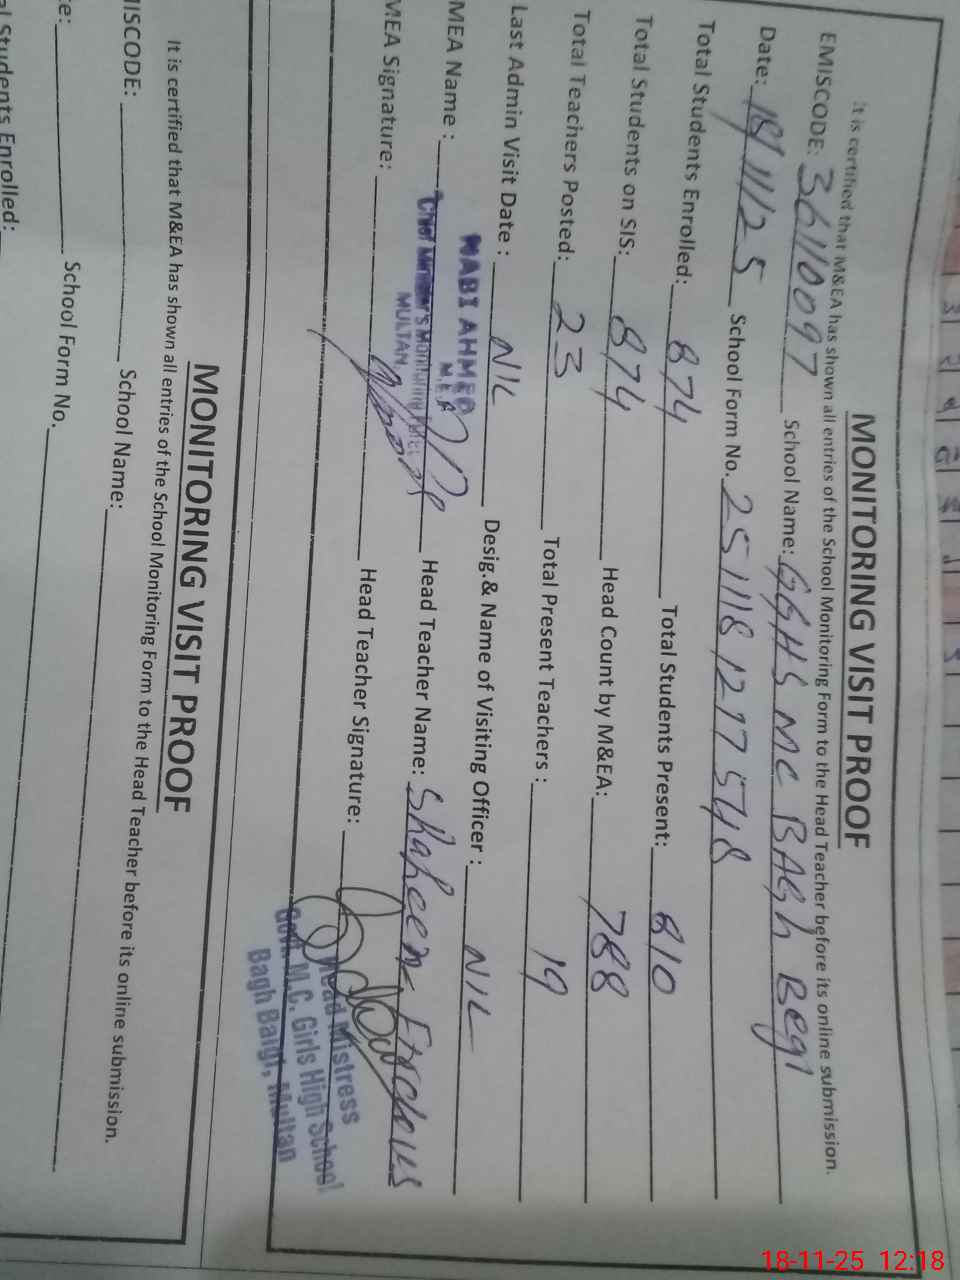 MONITORING VISIT PROOF
It is certified that M&EA has shown all entries of the School Monitoring Form to the Head Teacher before its online submission.
EMISCODE: 36110097 School Name: GGHS MC BAGh Begi
Date: 18/11/25 School Form No. 25111812775718
Total Students Enrolled: 874 Total Students Present: 810
Total Students on SIS: 874 Head Count by M&EA: 788
Total Teachers Posted: 23 Total Present Teachers : 19
Last Admin Visit Date : NIL Desig.& Name of Visiting Officer : NIL
MEA Name : NABI AHMED Head Teacher Name: Shaheena Firdous
M.E.A
Chief Minister's Monitoring Force
MULTAN.
MEA Signature: Head Teacher Signature:
Head Mistress
Govt. M.C. Girls High School
Bagh Baigi, Multan
MONITORING VISIT PROOF
It is certified that M&EA has shown all entries of the School Monitoring Form to the Head Teacher before its online submission.
MISCODE: School Name:
te: School Form No.
al Students Enrolled:
18-11-25 12:18